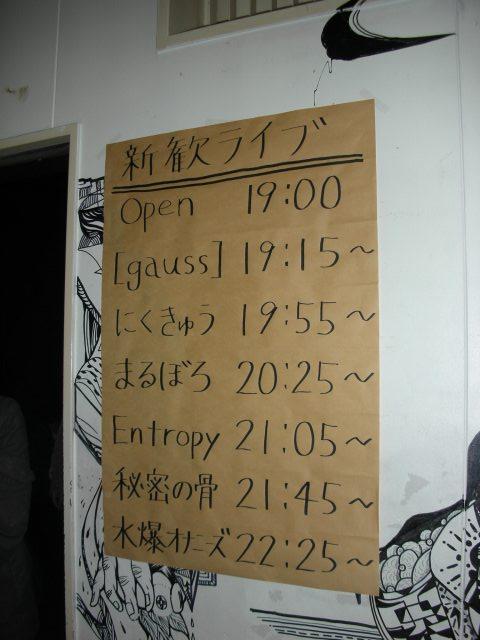 新歓ライブ
Open 19:00
[gauss] 19:15～
にくきゅう 19:55～
まるぼろ 20:25～
Entropy 21:05～
秘密の骨 21:45～
水爆オナニーズ 22:25～